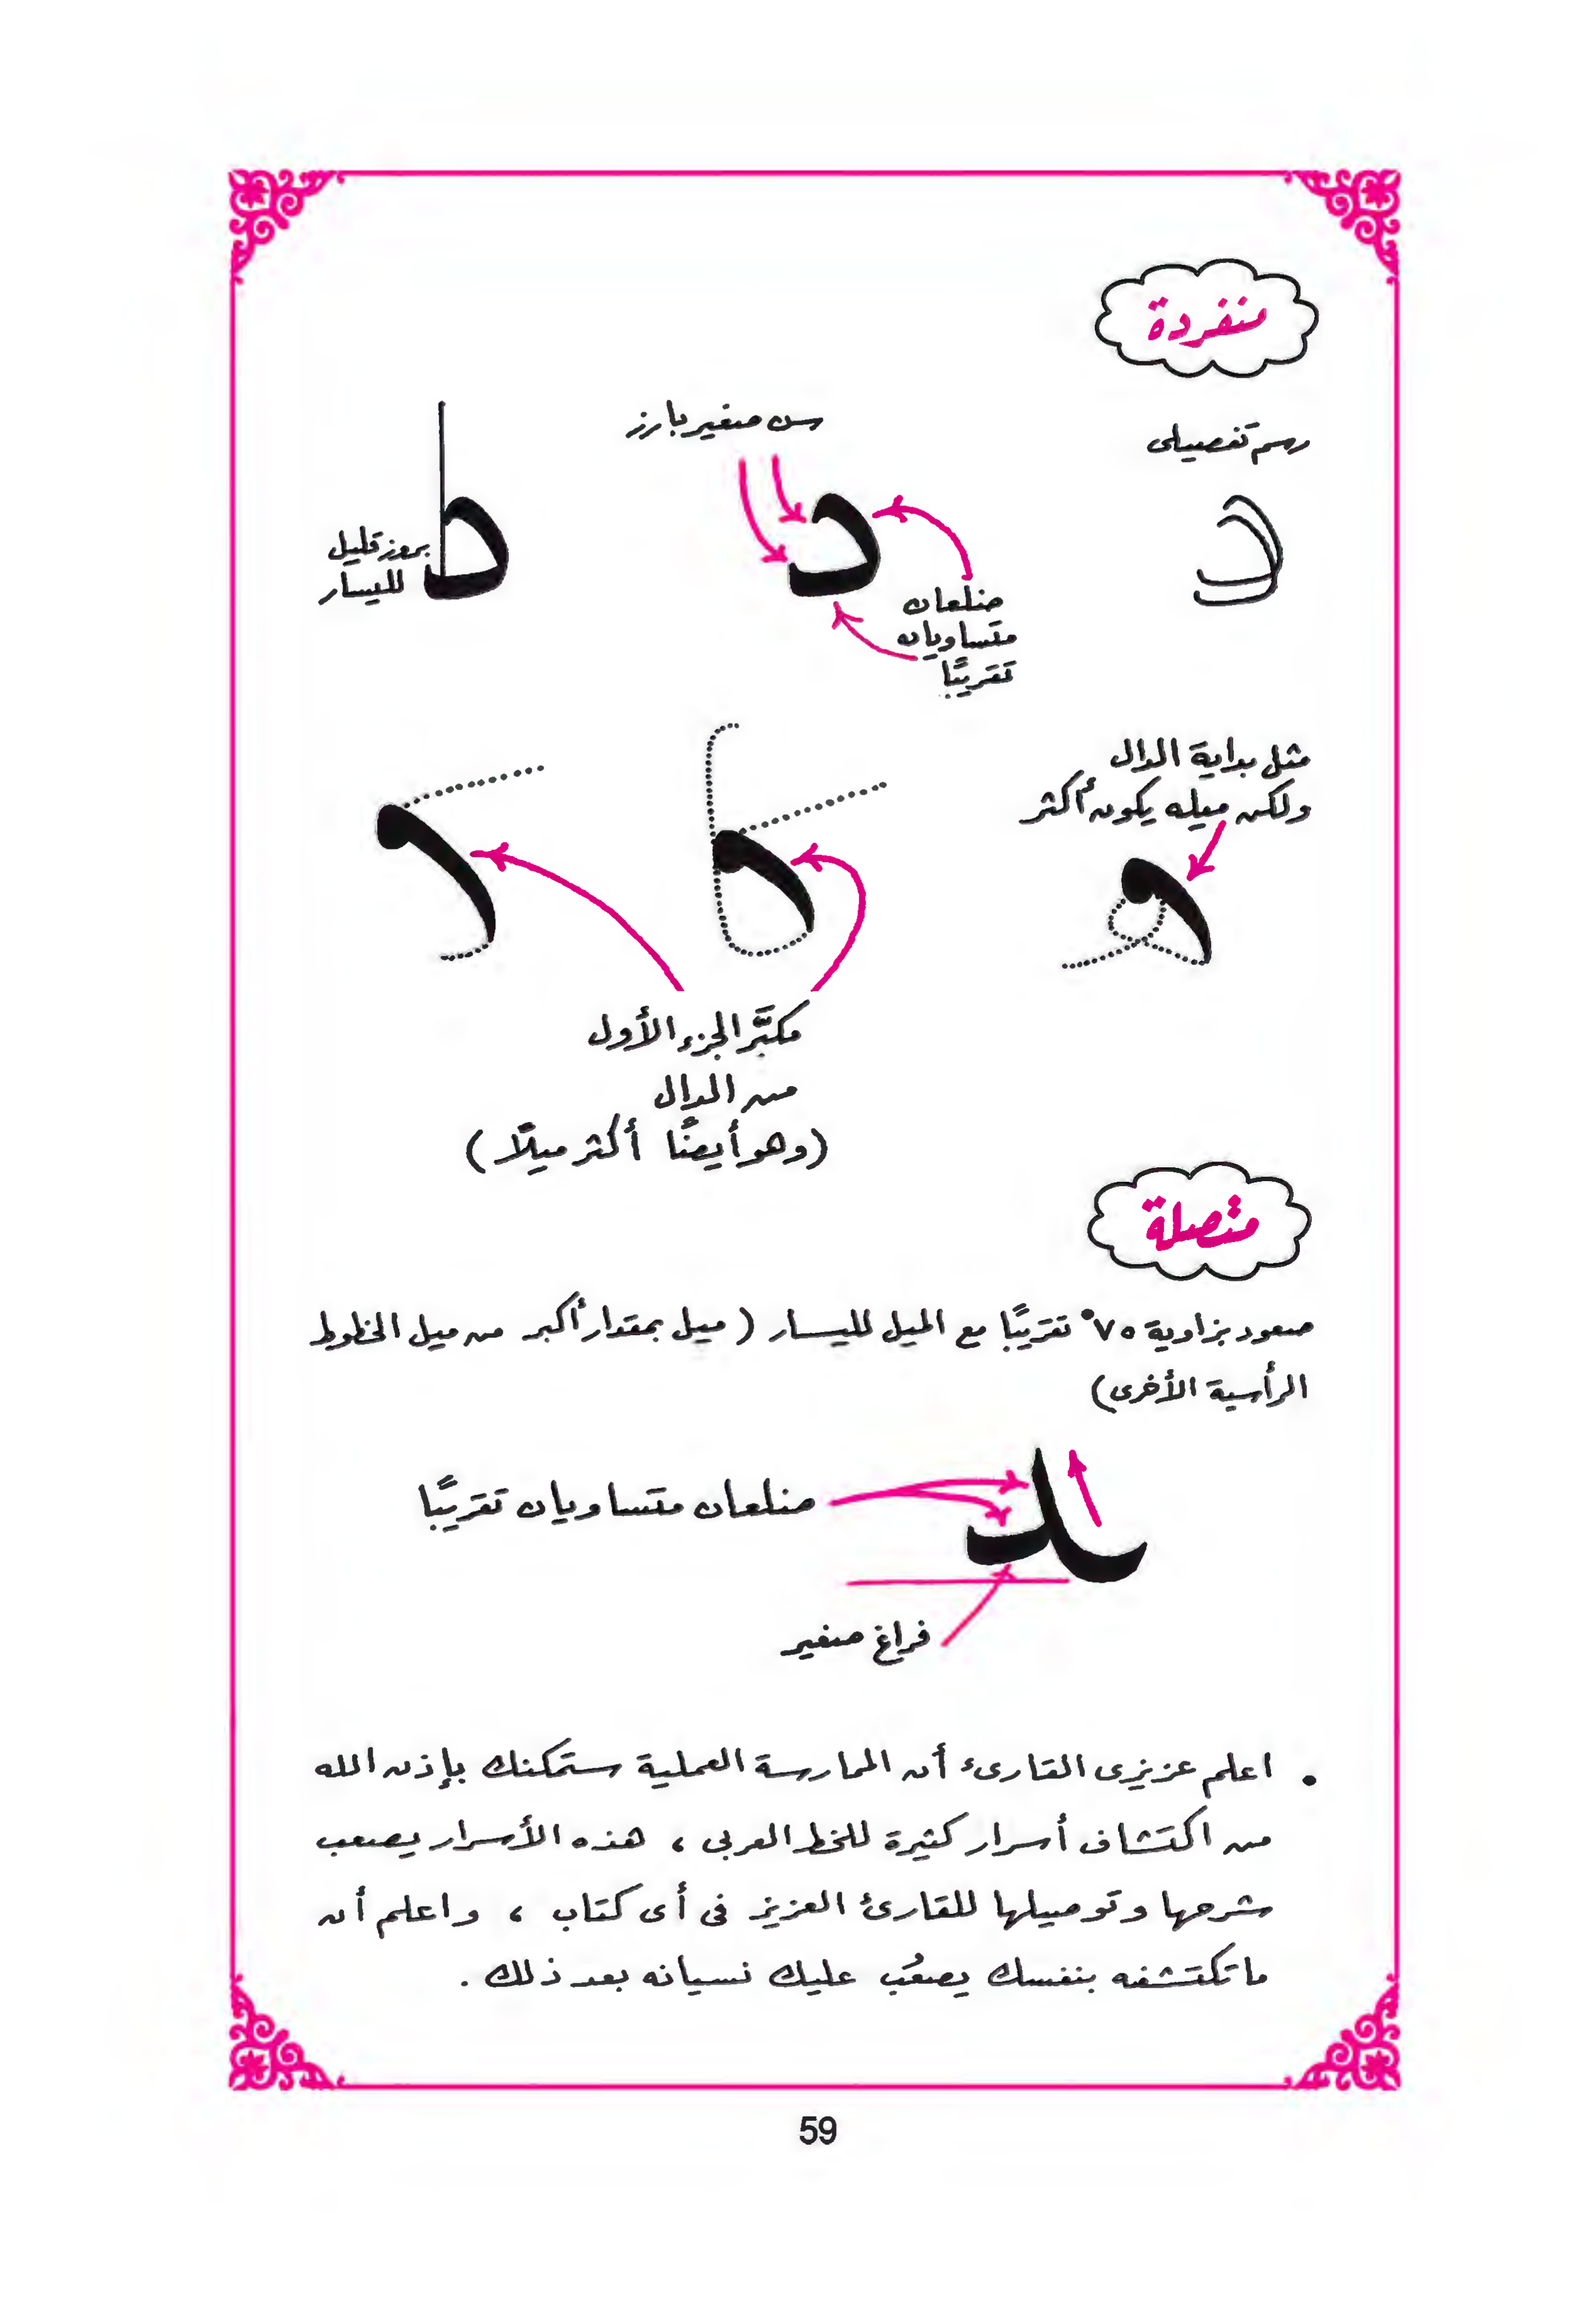 منفردة
رسم تفصيلى
سن صغير بارز
ضلعان
متساويان
تقريبًا
بروز قليل
لليسار
مثل بداية الدال
ولكن ميله يكون أكثر
مكبَّر الجزء الأول
من الدال
(وهو أيضًا أكثر ميلًا)
متصلة
صعود بزاوية ٧٥° تقريبًا مع الميل لليسار (ميل بمقدار أكبر من ميل الخطوط
الرأسية الأخرى)
ضلعان متساويان تقريبًا
فراغ صغير
• اعلم عزيزى القارىء أن الممارسة العملية ستمكنك بإذن الله
من اكتشاف أسرار كثيرة للخط العربى ، هذه الأسرار يصعب
شرحها وتوصيلها للقارئ العزيز فى أى كتاب ، واعلم أن
ما تكتشفه بنفسك يصعُب عليك نسيانه بعد ذلك .
59